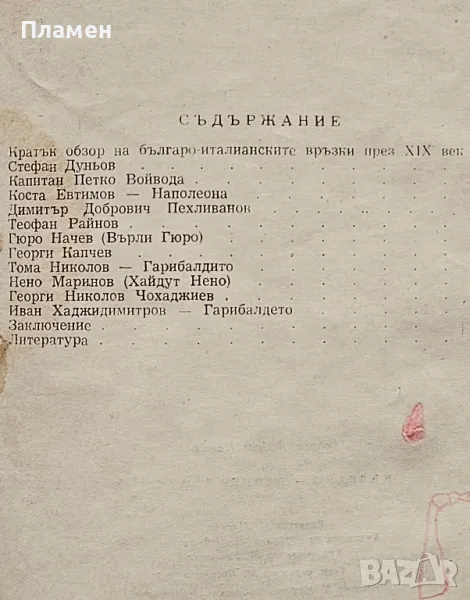 Пламен
СЪДЪРЖАНИЕ
Кратък обзор на българо-италианските връзки през XIX век
Стефан Дуньов
Капитан Петко Войвода
Коста Евтимов — Наполеона
Димитър Добрович Пехливанок
Теофан Райнов
Гюро Начев (Върли Гюро)
Георги Капчев
Тома Николов — Гарибалдито
Нено Маринов (Хайдут Неко)
Георги Николов Чохаджиев
Иван Хаджидимитров — Гарибалдето
Заключение
Литература
BAZAR